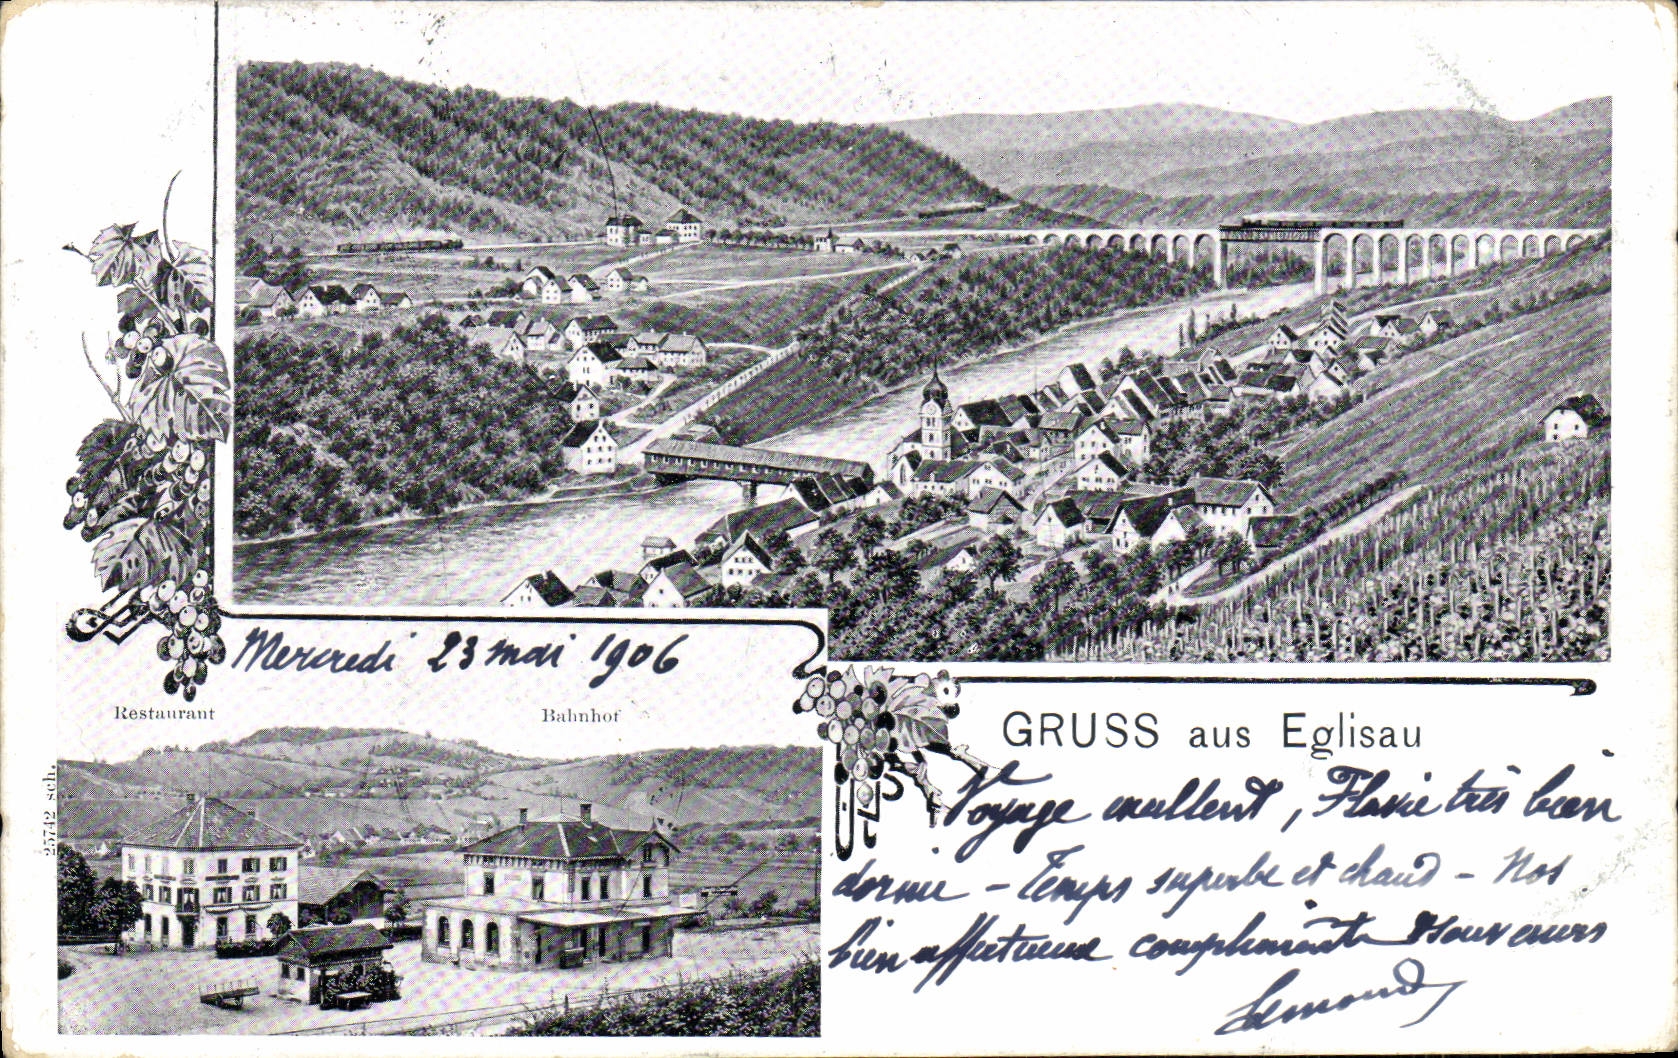 Mercredi 23 mai 1906
Restaurant
Bahnhof
25742 sch.
GRUSS aus Eglisau
Voyage excellent, Flavie très bien
dormie – Temps superbe et chaud – Nos
bien affectueux compliments & souvenirs
Edmond